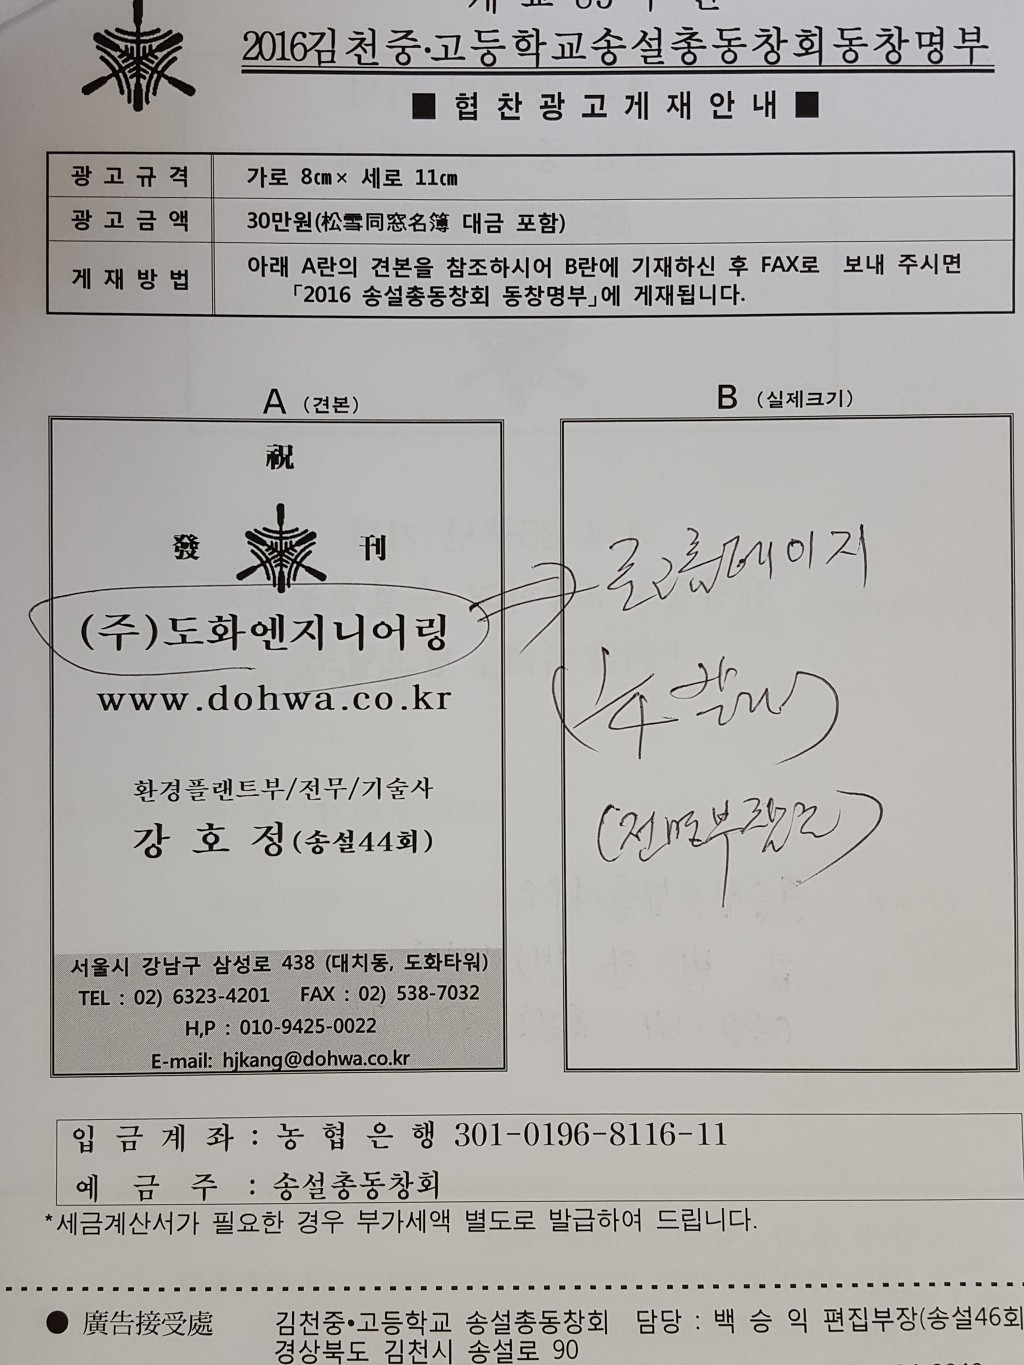 2016김천중·고등학교송설총동창회동창명부
■ 협 찬 광 고 게 재 안 내 ■
광 고 규 격 가로 8㎝× 세로 11㎝
광 고 금 액 30만원(松雪同窓名簿 대금 포함)
게 재 방 법 아래 A란의 견본을 참조하시어 B란에 기재하신 후 FAX로 보내 주시면
「2016 송설총동창회 동창명부」에 게재됩니다.
A (견본)
祝
發 刊
(주)도화엔지니어링
www.dohwa.co.kr
환경플랜트부/전무/기술사
강 호 정(송설44회)
서울시 강남구 삼성로 438 (대치동, 도화타워)
TEL : 02) 6323-4201 FAX : 02) 538-7032
H,P : 010-9425-0022
E-mail: hjkang@dohwa.co.kr
B (실제크기)
입 금 계 좌 : 농 협 은 행 301-0196-8116-11
예 금 주 : 송설총동창회
*세금계산서가 필요한 경우 부가세액 별도로 발급하여 드립니다.
● 廣告接受處 김천중•고등학교 송설총동창회 담당 : 백 승 익 편집부장(송설46회
경상북도 김천시 송설로 90